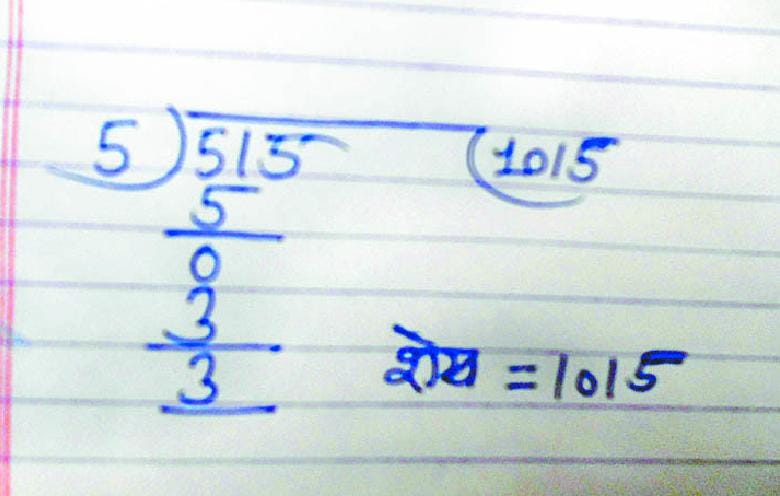 5)515(1015
5
0
3
3
शेष = 1015